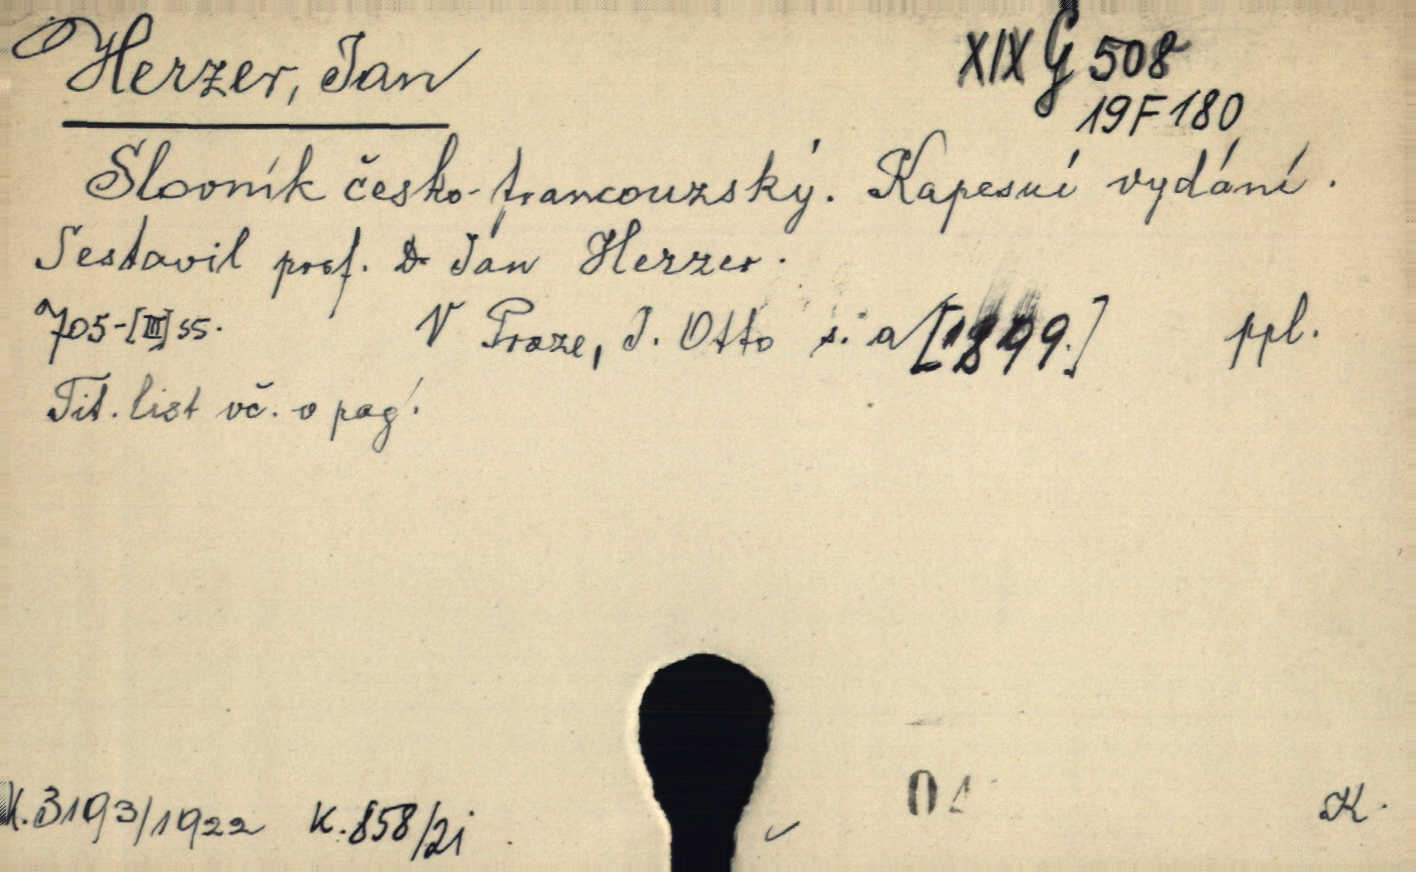 Herzer, Jan
XIX G 508
19F180
Slovník česko-francouzský. Kapesní vydání.
Sestavil prof. Dr Jan Herzer.
705-[III] ss. V Praze, J. Otto s. a [1899.] ppl.
Tit. list vč. o pag.
K.3193/1922 K.858/2i
04
K.